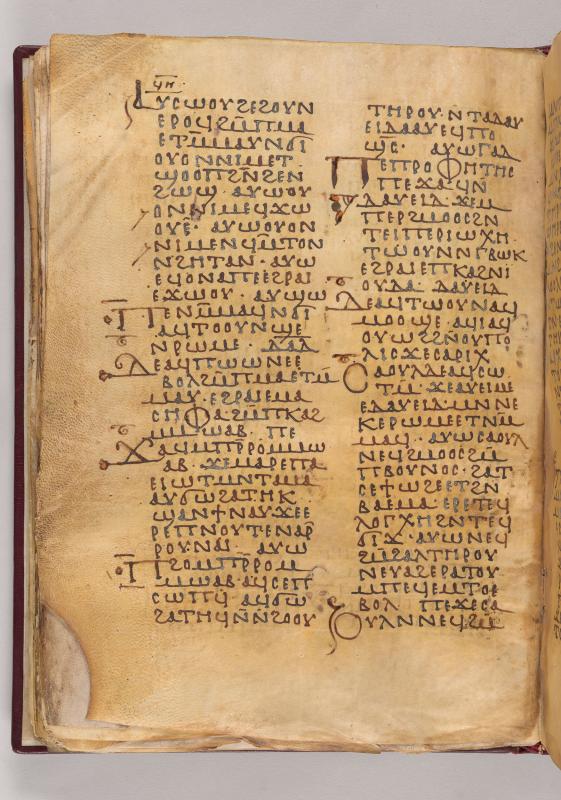 ϥⲏ
ⲁⲩⲥⲱⲟⲩϩⲉϩⲟⲩⲛ
ⲉⲣⲟϥϩⲙ̅ⲡⲙⲁ
ⲉⲧⲙ̅ⲙⲁⲩⲛϭⲓ
ⲟⲩⲟⲛⲛⲓⲙⲉⲧ
ϣⲟⲟⲡϩⲛϩⲉⲛ
ϩⲱϣ· ⲁⲩⲱⲟⲩ
ⲟⲛⲛⲓⲙⲉϥⲭⲱ
ⲟⲩⲉ̅· ⲁⲩⲱⲟⲩⲟⲛ
ⲛⲓⲙⲉⲛϥⲙ̅ⲧⲟⲛ
ⲛϩⲏⲧⲁⲛ· ⲁⲩⲱ
ⲉϥⲟⲛⲁⲡⲉⲉϩⲣⲁⲓ
ⲉϫⲱⲟⲩ· ⲁⲩϣⲱ
ⲡⲉⲛⲙ̅ⲙⲁϥⲛϭⲓ
ⲁϥⲧⲟⲟⲩⲛϣⲉ
ⲛⲣⲱⲙⲉ· ⲇⲁⲇ
ⲇⲉⲁϥⲡⲱⲱⲛⲉⲉ
ⲃⲟⲗϩⲙ̅ⲡⲙⲁⲉⲧⲙ̅
ⲙⲁⲩ· ⲉϩⲣⲁⲓⲉⲙⲁ
ⲥⲏⲫⲁϩⲙ̅ⲡⲕⲁϩ
ⲙ̅ⲙⲱⲁⲃ· ⲡⲉ
ϫⲁϥⲙ̅ⲡⲣⲣⲟⲙ̅ⲙⲱ
ⲁⲃ· ϫⲉⲙⲁⲣⲉⲡⲁ
ⲉⲓⲱⲧⲙⲛⲧⲁⲙⲁ
ⲁⲩϭⲱϩⲁⲧⲏⲕ
ϣⲁⲛϯⲛⲁⲩϫⲉⲉ
ⲣⲉⲡⲛⲟⲩⲧⲉⲛⲁⲣ̅
ⲣⲟⲩⲛⲁⲓ̈· ⲁⲩⲱ
ⲡϩⲟⲙ̅ⲡⲣⲣⲟⲙ̅
ⲙⲱⲁⲃ· ⲁϥⲥⲉⲡ̅
ⲥⲱⲡϥ̅ ⲁϥϭⲱ
ϩⲁⲧⲏϥⲛ̅ⲛ̅ϩⲟⲟⲩ
ⲧⲏⲣⲟⲩ· ⲛ̅ⲧⲁⲇⲁⲩ
ⲉⲓⲇⲁⲁⲩⲉϥⲡⲟ
ⲱ̅ⲥ̅· ⲁⲩⲱⲅⲁⲇ
ⲡⲉⲡⲣⲟⲫⲏⲧⲏⲥ
ⲡⲉϫⲁϥⲛ̅
ⲇⲁⲩⲉⲓⲇ· ϫⲉⲙ̅
ⲡⲉⲣϩⲙⲟⲟⲥϩⲛ
ⲧⲉⲓⲡⲉⲣⲓⲱⲭⲏ
ⲧⲱⲟⲩⲛⲛⲅⲃⲱⲕ
ⲉϩⲣⲁⲓⲉⲡⲕⲁϩⲛⲓ̈
ⲟⲩⲇⲁ· ⲇⲁⲩⲉⲓⲇ
ⲇⲉⲁϥⲧⲱⲟⲩⲛⲁϥ
ⲙⲟⲟϣⲉ· ⲁϥⲓⲁϥ
ⲟⲩⲱϩϩⲛ̅ⲟⲩⲡⲟ
ⲗⲓⲥϫⲉⲥⲁⲣⲓⲭ
ⲥⲁⲟⲩⲗⲇⲉⲁϥⲥⲱ
ⲧⲙ̅· ϫⲉⲁⲩⲉⲓⲙⲉ
ⲉⲇⲁⲩⲉⲓⲇ· ⲙⲛⲛⲉ
ⲕⲉⲣⲱⲙⲉⲉⲧⲛⲙ̅
ⲙⲁϥ· ⲁⲩⲱⲥⲁⲟⲩⲗ
ⲛⲉϥϩⲙⲟⲟⲥϩⲙ̅
ⲡⲃⲟⲩⲛⲟⲥ· ϩⲁⲧ
ⲥⲉϯⲱϩⲉⲉⲧϩⲛ̅
ⲃⲁⲉⲙⲁ· ⲉⲣⲉⲧⲉϥ
ⲗⲟⲅⲭⲏϩⲛⲧⲉϥ
ϭⲓϫ· ⲁⲩⲱⲛⲉϥ
ϩⲙϩⲁⲗⲧⲏⲣⲟⲩ
ⲛⲉⲩⲁϩⲉⲣⲁⲧⲟⲩ
ⲙ̅ⲡⲉϥⲙ̅ⲧⲟⲉ
ⲃⲟⲗ ⲡⲉϫⲉⲥⲁ
ⲟⲩⲗⲛⲛⲉϥϩⲙ̅